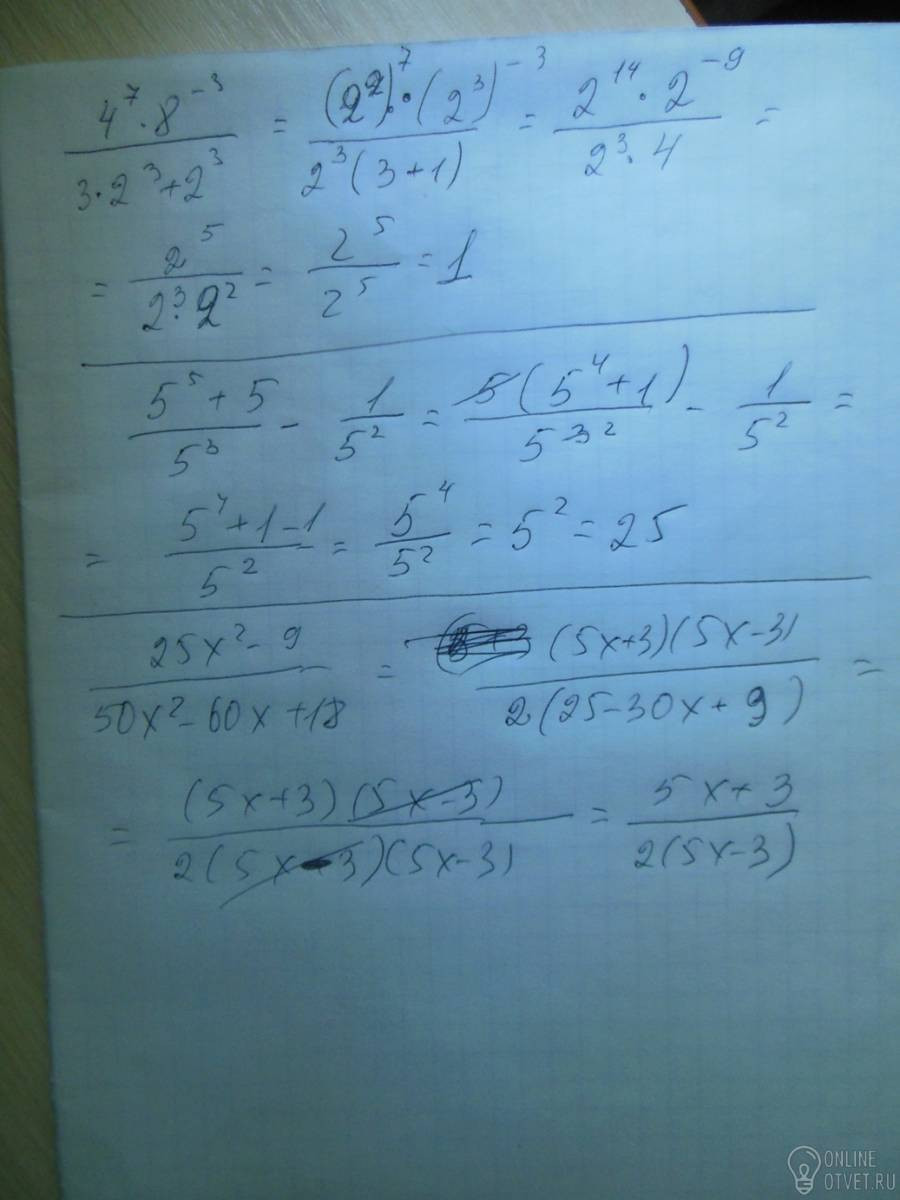 4^7·8^-3 / 3·2^3+2^3 = (2^2)^7·(2^3)^-3 / 2^3(3+1) = 2^14·2^-9 / 2^3·4 =
= 2^5 / 2^3·2^2 = 2^5 / 2^5 = 1
5^5+5 / 5^3 - 1 / 5^2 = 5(5^4+1) / 5^3 2 - 1 / 5^2 =
= 5^4+1-1 / 5^2 = 5^4 / 5^2 = 5^2 = 25
25x^2-9 / 50x^2-60x+18 = (5x+3)(5x-3) / 2(25-30x+9) =
= (5x+3)(5x-3) / 2(5x-3)(5x-3) = 5x+3 / 2(5x-3)
ONLINE
OTVET.RU